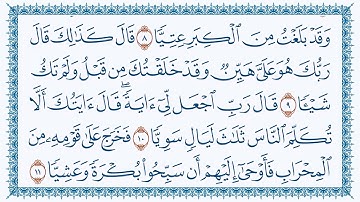 وَقَدْ بَلَغْتُ مِنَ ٱلْكِبَرِ عِتِيًّا ٨ قَالَ كَذَٰلِكَ قَالَ
رَبُّكَ هُوَ عَلَىَّ هَيِّنٌ وَقَدْ خَلَقْتُكَ مِن قَبْلُ وَلَمْ تَكُ
شَيْـًٔا ٩ قَالَ رَبِّ ٱجْعَل لِّىٓ ءَايَةً ۚ قَالَ ءَايَتُكَ أَلَّا
تُكَلِّمَ ٱلنَّاسَ ثَلَٰثَ لَيَالٍ سَوِيًّا ١٠ فَخَرَجَ عَلَىٰ قَوْمِهِۦ مِنَ
ٱلْمِحْرَابِ فَأَوْحَىٰٓ إِلَيْهِمْ أَن سَبِّحُوا۟ بُكْرَةً وَعَشِيًّا ١١